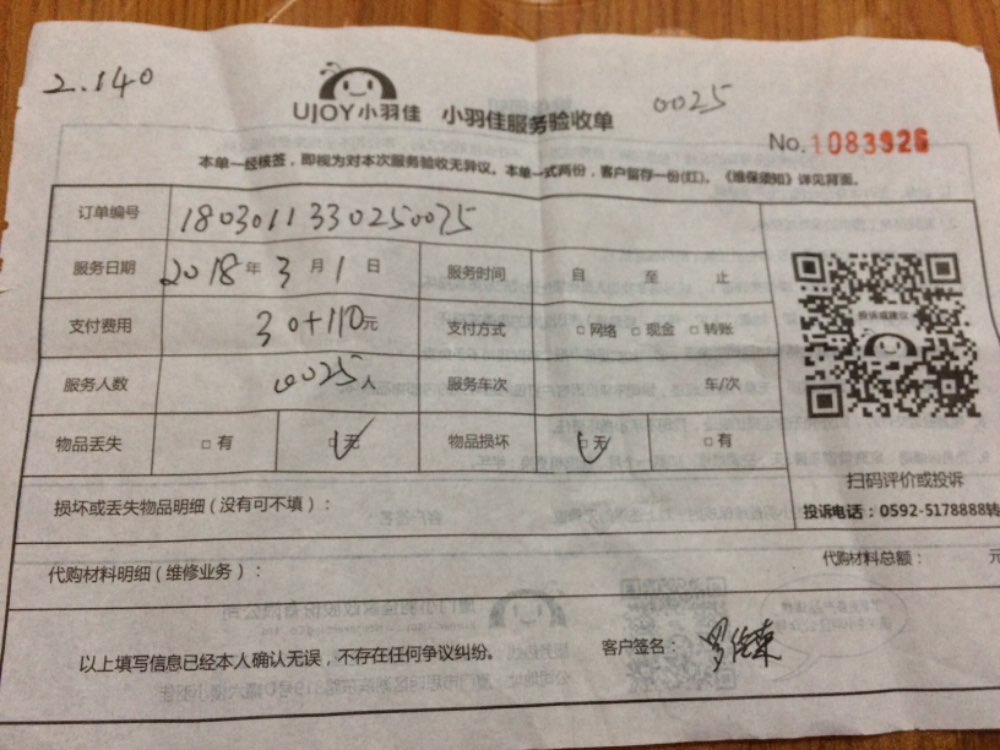 2.140
0025
UJOY小羽佳 小羽佳服务验收单
No.1083926
本单一经核签，即视为对本次服务验收无异议。本单一式两份，客户留存一份(红)。《维保须知》详见背面。
订单编号 1803011330250025
服务日期 2018年3月1日 服务时间 自 至 止
支付费用 30+110元 支付方式 □网络 □现金 □转账
投诉或建议
服务人数 0025人 服务车次 车/次
物品丢失 □有 □无 物品损坏 □无 □有
扫码评价或投诉
损坏或丢失物品明细(没有可不填)：
投诉电话：0592-5178888转
代购材料明细(维修业务)： 代购材料总额： 元
以上填写信息已经本人确认无误，不存在任何争议纠纷。 客户签名：